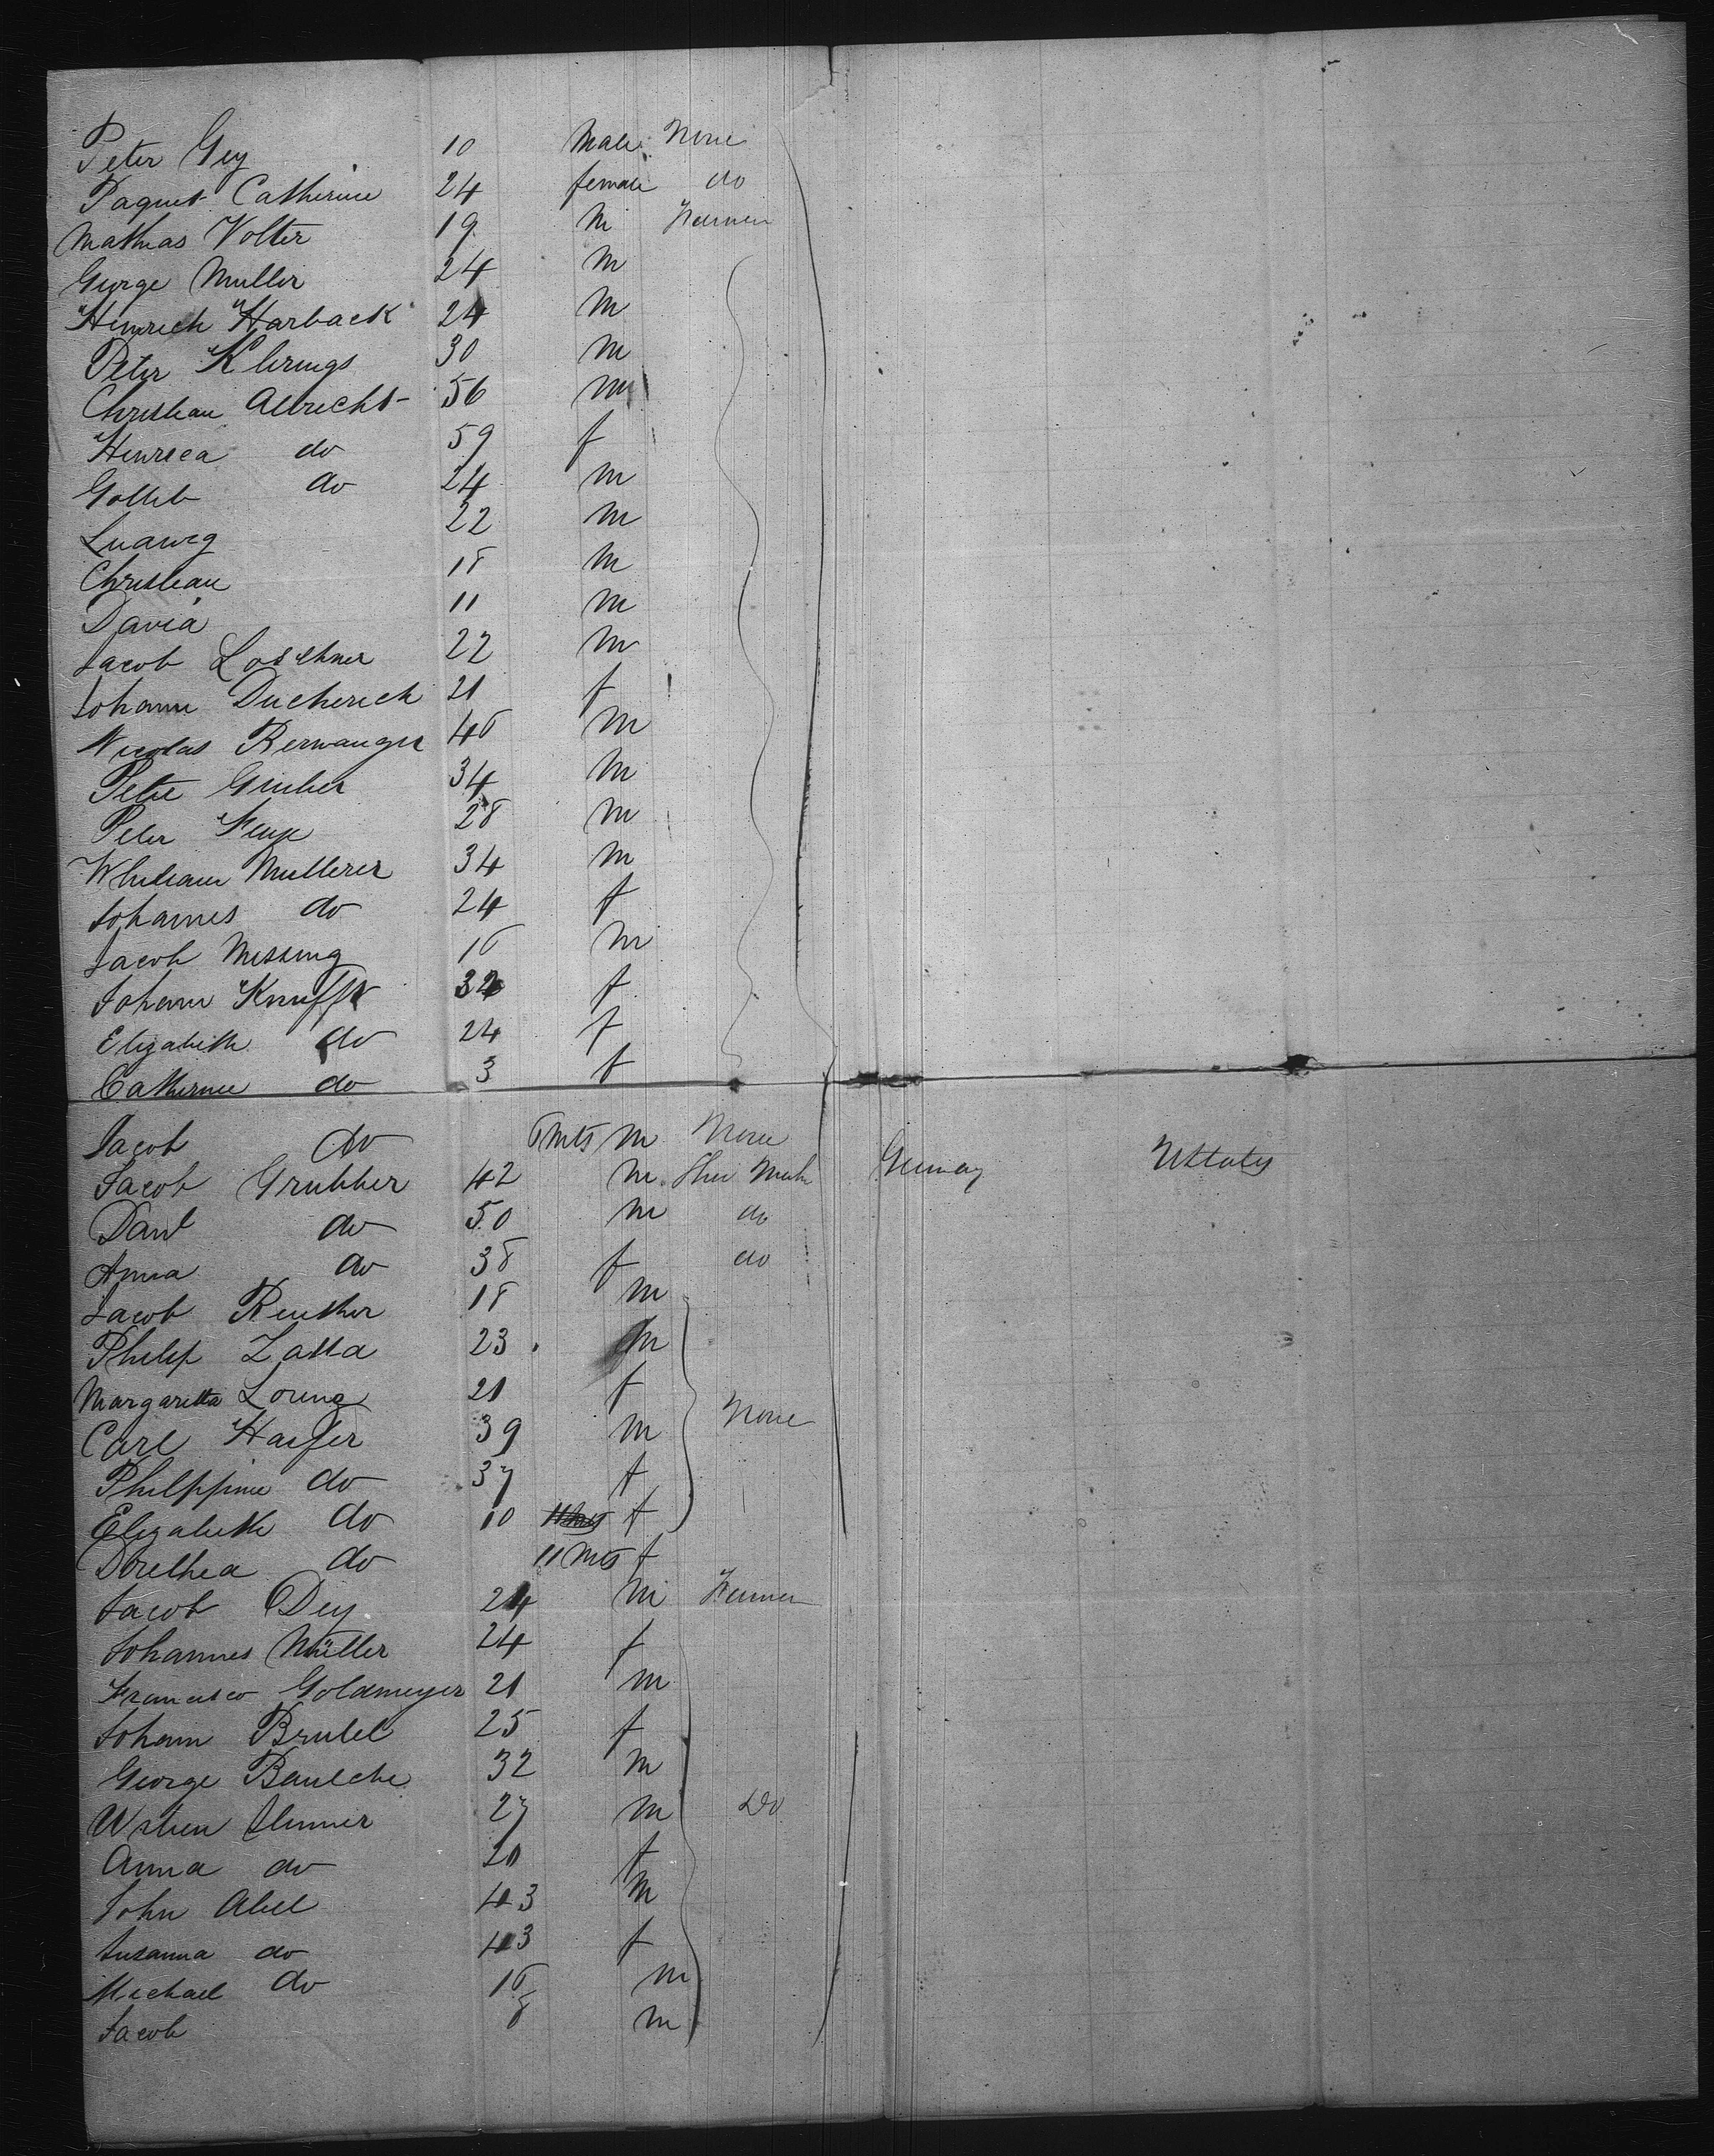 Peter Gey 10 Male None
Paquet Catherine 24 female do
Mathias Volter 19 m Farmer
George Muller 24 m
Heinrich Harback 24 m
Peter Klerings 30 m
Christian Albrecht 56 m
Henreca do 59 f
Gottleb do 24 m
Ludweg 22 m
Christian 18 m
David 11 m
Jacob Loschner 22 m
Johann Ducherich 21 f
Nicolas Rerwanger 46 m
Peter Gruber 34 m
Peter 28 m
Mullerer 34 m
Johannes do 24 f
Jacob Messing 16 m
Johann Knufft f
Elizabeth do 24 f
Catherine do 3 f
Jacob do 6 Mts m None
Jacob Grubber 42 m Germany UStates
do 50 m do
Anna do 38 f do
Jacob Reuther 18 m
Philip Latta 23 m
Margaretta Lorenz 21 f None
Carl Haefer 39 m
Philppine do 37 f
Elizabeth do 10 f
Dorethea do 11 Mts f
Jacob Dey 24 m Farmer
Johannes Müller 24 f
Francisco Goldmeyer 21 m
Johann Brubel 25 f
George 32 m
27 m Do
Anna do 20 f
John Abel 43 m
Susanna do 43 f
Michael do 16 m
Jacob 8 m